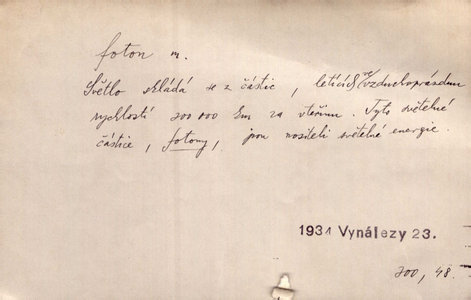 foton m.
Světlo skládá se z částic, letících ve vzduchoprázdnu
rychlostí 300 000 km za vteřinu. Tyto světelné
částice, fotony, jsou nositeli světelné energie.
1934 Vynálezy 23.
300, 48.